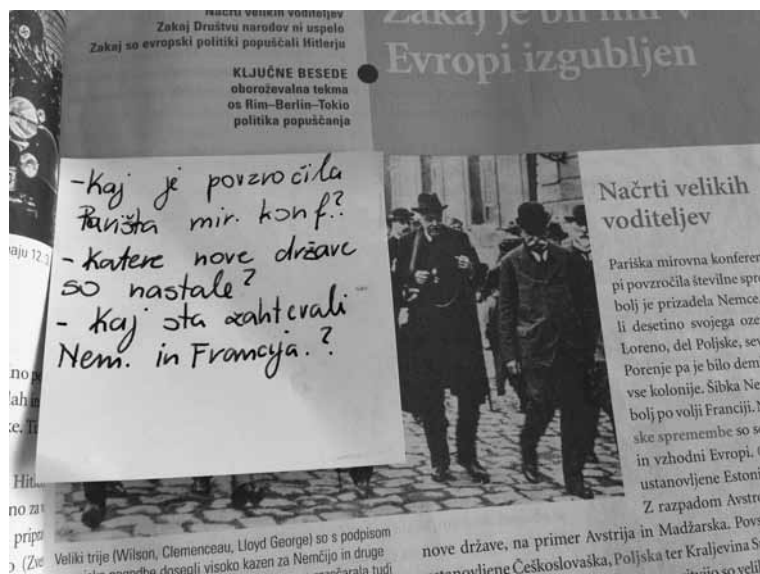 Načrti velikih voditeljev
Zakaj Društvu narodov ni uspelo
Zakaj so evropski politiki popuščali Hitlerju
KLJUČNE BESEDE
oboroževalna tekma
os Rim–Berlin–Tokio
politika popuščanja
Zakaj je bil mir v
Evropi izgubljen
-Kaj je povzročila
Pariška mir. konf.?
- Katere nove države
so nastale?
- Kaj sta zahtevali
Nem. in Francija.?
Načrti velikih
voditeljev
Pariška mirovna konferen
pi povzročila številne spre
bolj je prizadela Nemce.
li desetino svojega oze
Loreno, del Poljske, sev
Porenje pa je bilo dem
vse kolonije. Šibka Ne
bolj po volji Franciji.
ske spremembe so s
in vzhodni Evropi.
ustanovljene Estoni
Z razpadom Avstr
nove države, na primer Avstrija in Madžarska. Pov
stanovljene Češkoslovaška, Poljska ter Kraljevina S
so veli
aju 12.3
no p
lah in
Hit
no za
pripr
Veliki trije (Wilson, Clemenceau, Lloyd George) so s podpisom
dosegli visoko kazen za Nemčijo in druge
tudi